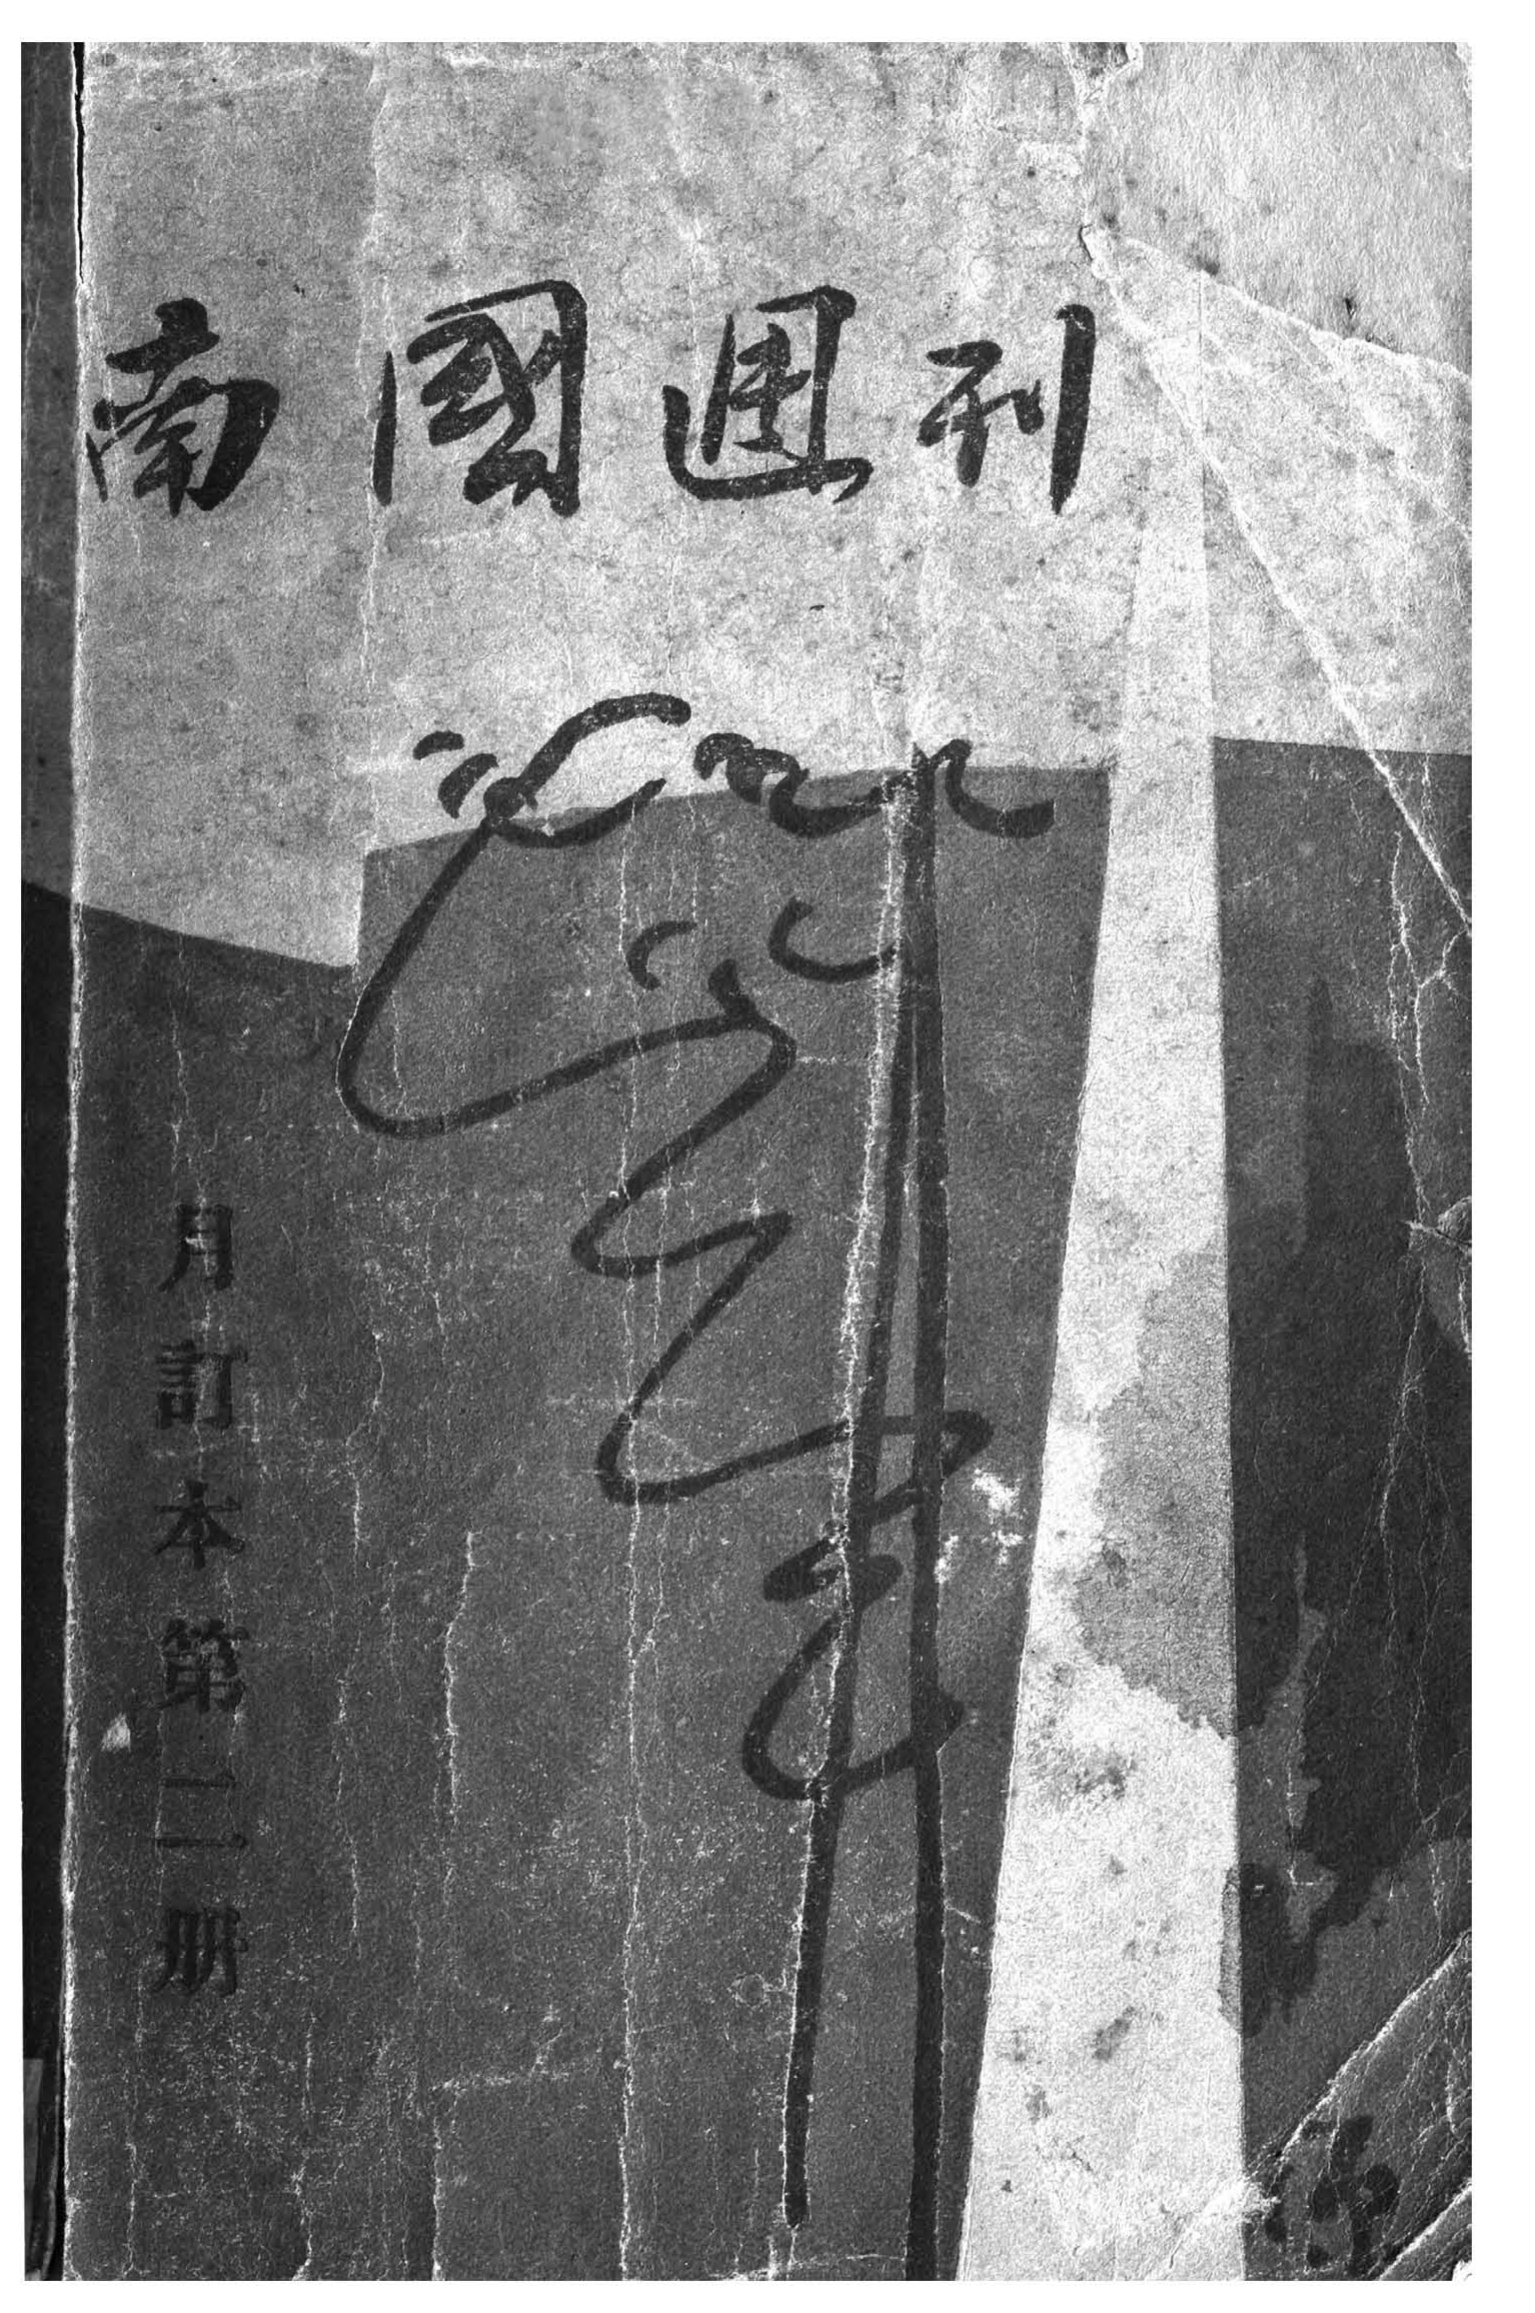 南國週刊
月訂本第二册